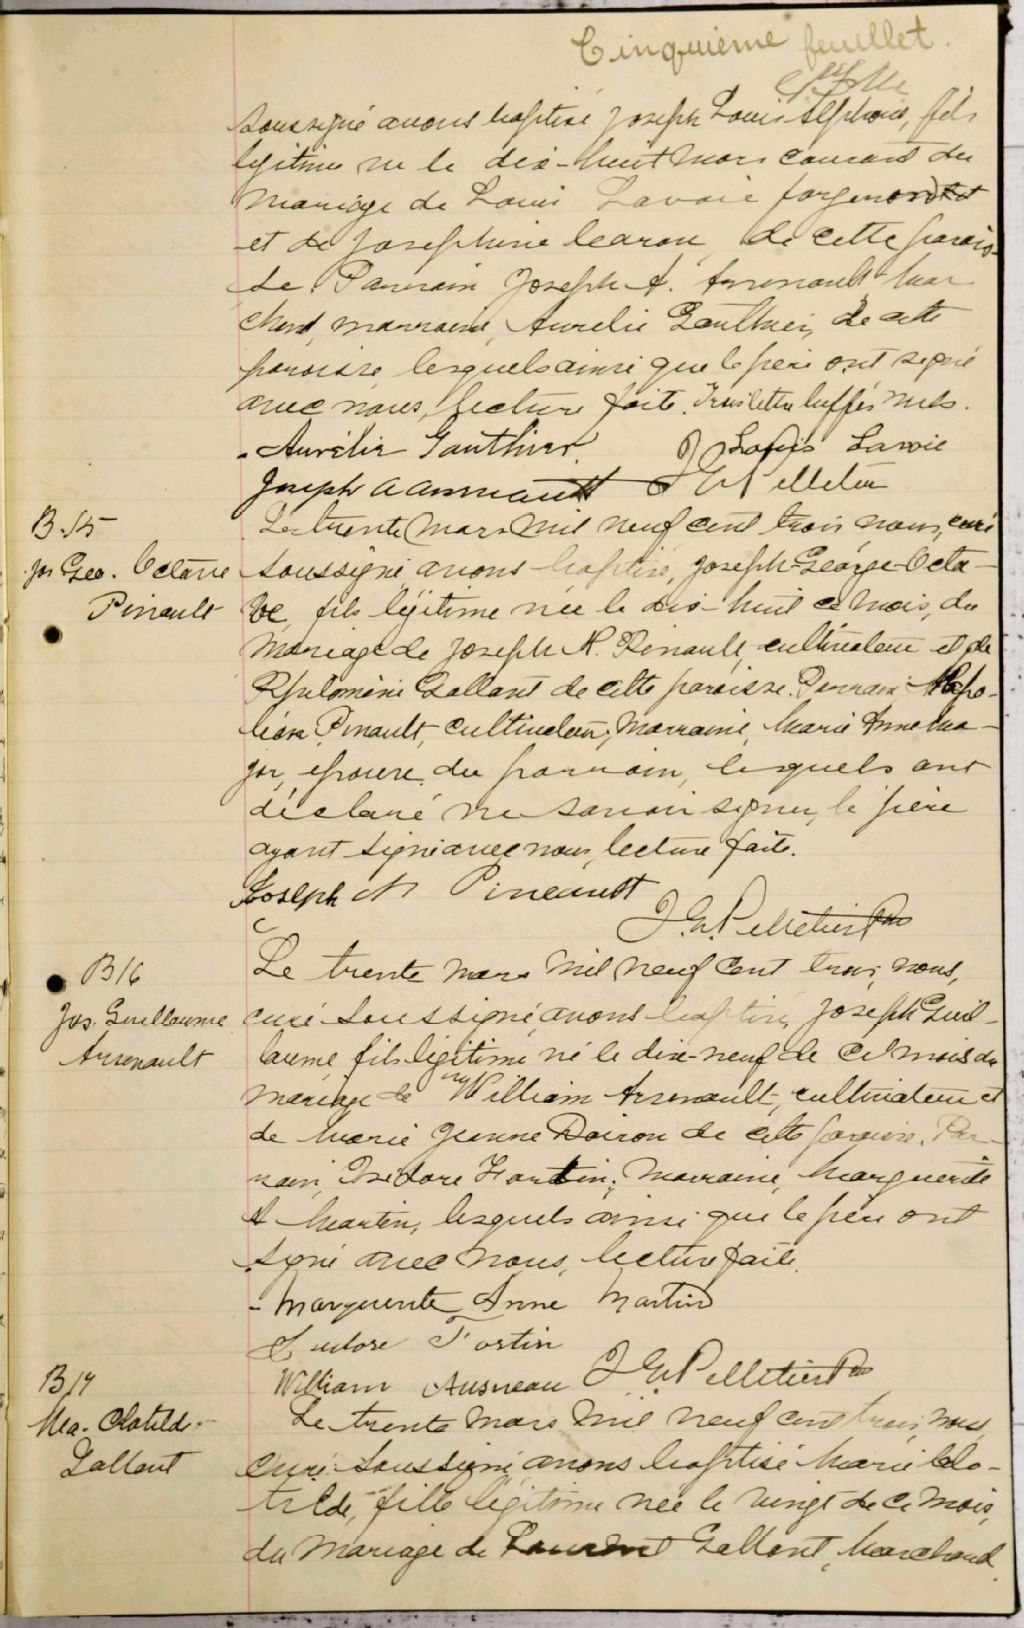 Cinquième feuillet.
soussigné avons baptisé Joseph Louis Alphonse, fils
légitime né le dix-huit Mars courant du
Mariage de Louis Lavoie forgeron
et de Josephine Caron, de cette parois-
se. Parrain Joseph A. Arsenault Mar
chand, marraine, Aurélie Gauthier, de cette
paroisse, lesquels ainsi que le père ont signé
avec nous, lecture faite. Trois lettres biffés nuls.
Aurélie Gauthier Louis Lavoie
Joseph A Arsenault J E Pelletier
B.15
Jos Geo. Octave
Pinault
Le trente Mars Mil neuf cent trois, nous, curé
soussigné avons baptisé, Joseph-George-Octa-
ve, fils légitime née le dix-huit ce mois, du
Mariage de Joseph N. Pinault, cultivateur et de
Philomène Gallant de cette paroisse. Parrain Napo-
léon Pinault, cultivateur, Marraine, Marie Anne Ma-
jor, épouse du parrain, lesquels ont
déclaré ne savoir signer, le père
ayant signé avec nous, lecture faite.
Joseph N Pineault
J. E. Pelletier Ptre
B16
Jos. Guillaume
Arsenault
Le trente Mars Mil neuf cent trois, nous,
curé soussigné, avons baptisé, Joseph Guil-
laume, fils légitime né le dix-neuf de ce mois du
mariage de William Arsenault, cultivateur et
de Marie Jeanne Doiron de cette paroisse. Par-
rain, Isidore Fortin; Marraine, Marguerite
A Martin, lesquels ainsi que le père ont
signé avec nous, lecture faite.
Marguerite Anne Martin
Isidore Fortin
William Ausneau J. E. Pelletier Ptre
B17
Mea. Clotilde
Gallant
Le trente Mars Mil neuf cent trois, nous
curé soussigné, avons baptisé Marie Clo-
tilde, fille légitime née le vingt de ce mois,
du Mariage de Laurent Gallant, Marchand